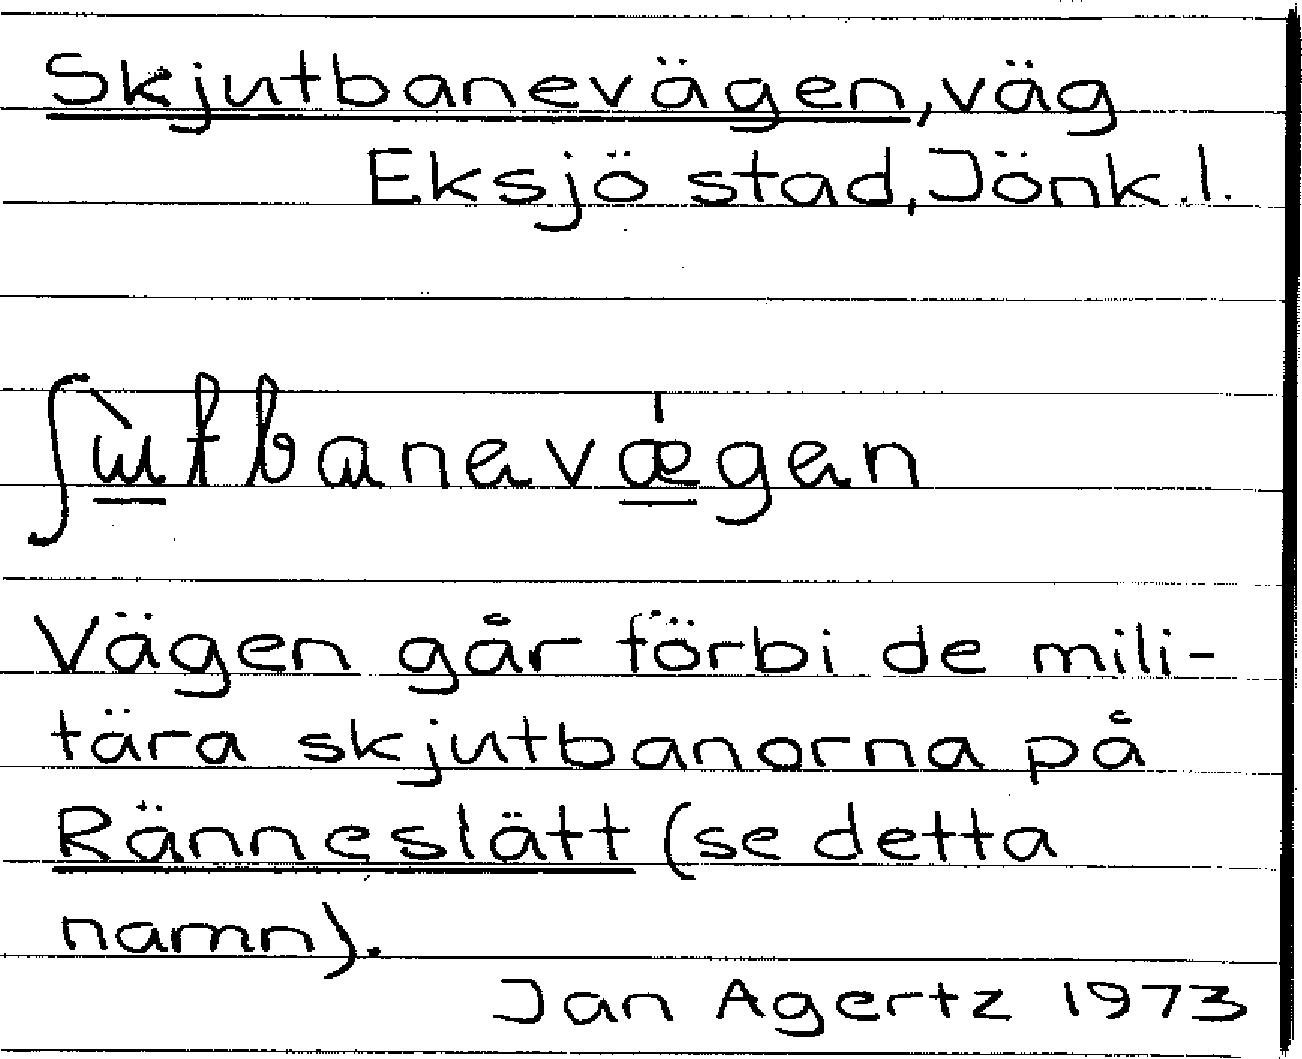 Skjutbanevägen, väg
Eksjö stad, Jönk.l.
ʃɯ̀tbɑnevǽgen
Vägen går förbi de mili-
tära skjutbanorna på
Ränneslätt (se detta
namn).
Jan Agertz 1973